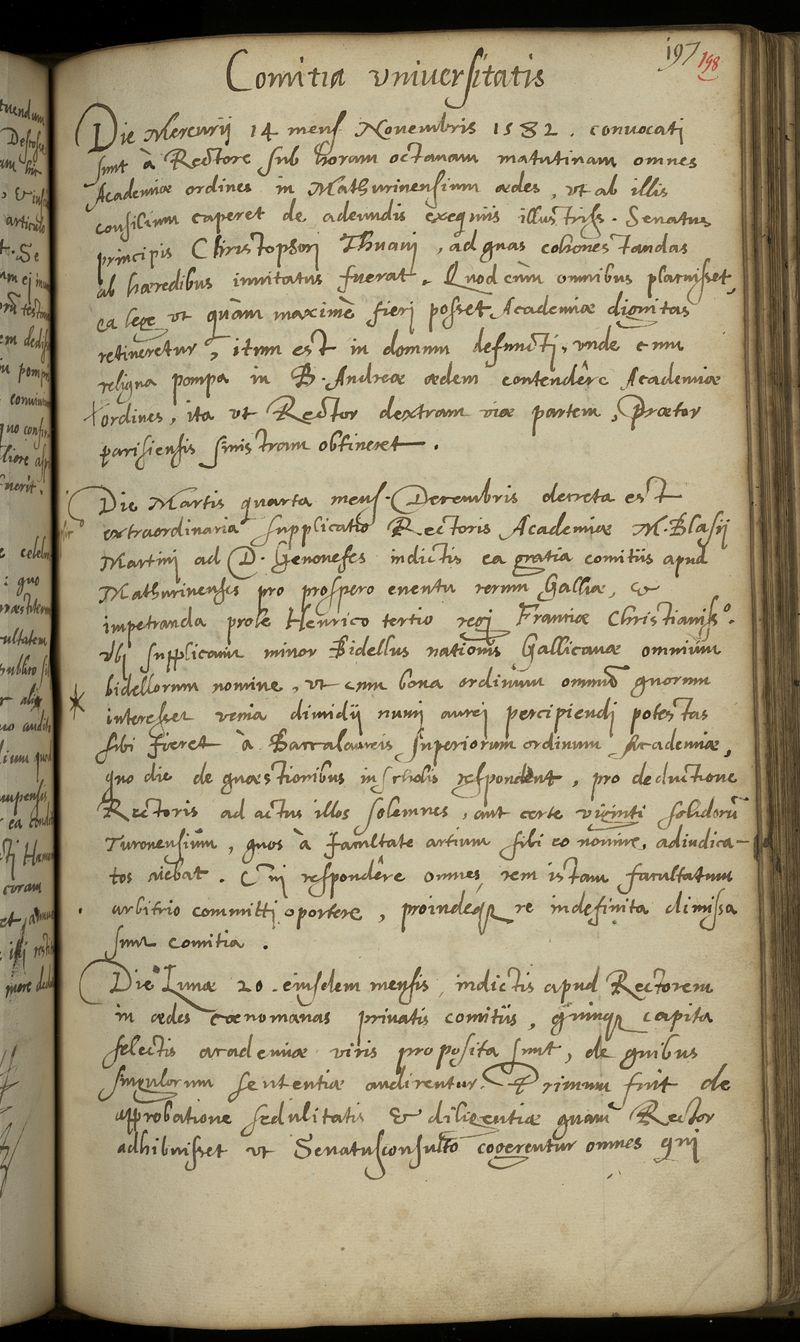 197 198
Comitia vniuersitatis
Die Mercurij 14 mens Nouembris 1582. conuocati
sunt à Rectore sub horam octauam matutinam omnes
Academiæ ordines in Mathurinensium ædes, vt ab illis
consilium caperet de adeundis exequiis illustriss. Senatus
principis Christophori Thuani, ad quas cohonestandas
ab hæredibus inuitatus fuerat. Quod cùm omnibus placuisset
ea lege vt quàm maximè fieri posset Academiæ dignitas
retineretur, itum est in domum defuncti, vnde cum
reliqua pompa in B. Andreæ ædem contendêre Academiæ
ordines, ita vt Rector dextram viæ partem, Prætor
parisiensis sinistram obtineret.
Die Martis quarta mens. Decembris decreta est
extraordinaria supplicatio Rectoris Academiæ M. Blasij
Martini ad D. Genouefes indictis ea gratia comitiis apud
Mathurinenses pro prospero euentu rerum Galliæ, &
impetranda prole Henrico tertio regi Franciæ Christianiss°.
Vbi supplicauit minor Bidellus nationis Gallicanæ omnium
bidellorum nomine, vt cum bona ordinum omniū quorum
interesset venia dimidij numi aurei percipiendi potestas
sibi fieret à Baccalaureis superiorum ordinum Academiæ,
quo die de quæstionibus in scholis respondent, pro deductione
Rectoris ad actus illos solemnes, aut certe viginti solidorū
Turonensium, quos à facultate artium sibi eo nomine, adiudica-
tos aiebat. Cui respondêre omnes rem istam facultatum
arbitrio committi oportere, proindeq; re indefinita dimissa
sunt comitia.
Die Lunæ 20. eiusdem mensis, indictis apud Rectorem
in ædes Cænomanas priuatis comitiis, quinq; capita
selectis academiæ viris proposita sunt, de quibus
singulorum sententiæ audirentur. Primum fuit de
approbatione sedulitatis & diligentiæ quam Rector
adhibuisset vt Senatusconsulto cogerentur omnes qui